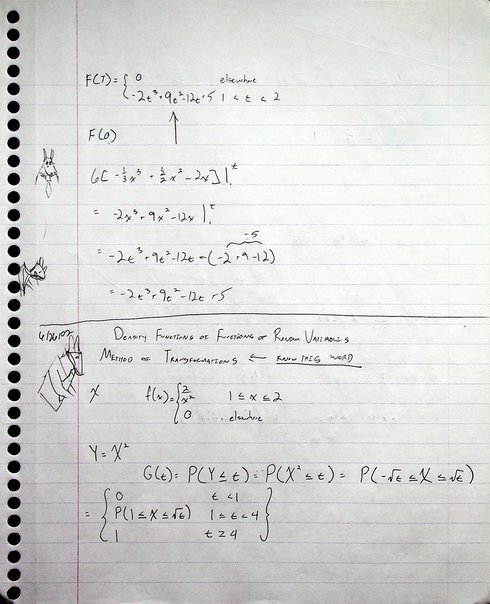 F(T) = { 0 elsewhere
-2t³+9t²-12t+5 1 < t < 2
F(0)
6[-⅓x³ + 3/2x² - 2x]|₁ᵗ
= -2x³+9x²-12x|₁ᵗ
-5
= -2t³+9t²-12t-(-2+9-12)
= -2t³+9t²-12t+5
6/26/02
DENSITY FUNCTIONS OF FUNCTIONS OF RANDOM VARIABLES
METHOD OF TRANSFORMATIONS ← KNOW THIS WORD
X f(x) = { 2/x² 1 ≤ x ≤ 2
0 elsewhere
Y = X²
G(t) = P(Y ≤ t) = P(X² ≤ t) = P(-√t ≤ X ≤ √t)
= { 0 t < 1
P(1 ≤ X ≤ √t) 1 ≤ t < 4
1 t ≥ 4 }